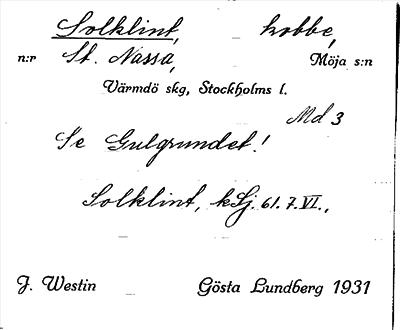 Solklint, kobbe,
n:r St. Nassa, Möja s:n
Värmdö skg, Stockholms l.
Md 3
Se Gulgrundet!
Solklint, kSj. 61. 7. VI.,
J. Westin Gösta Lundberg 1931